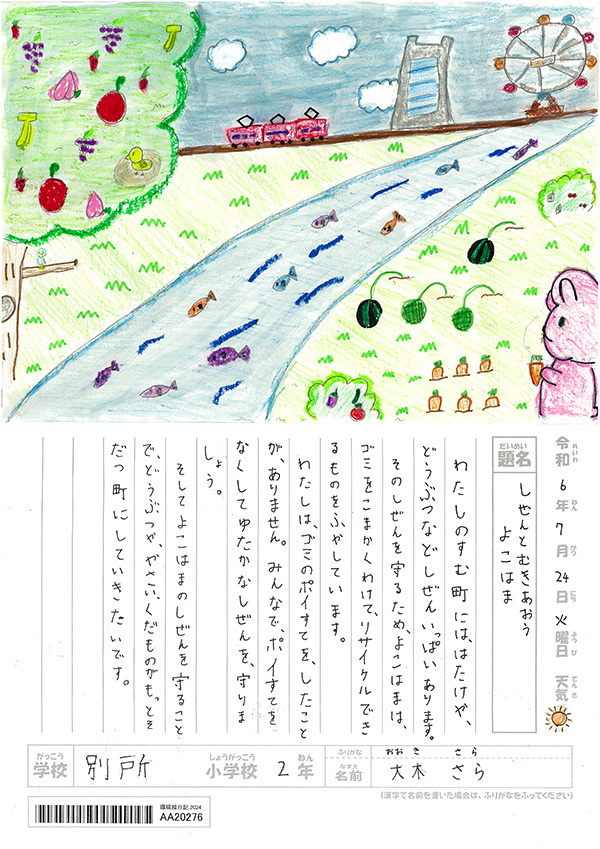 令和れいわ6年ねん7月がつ24日にち火曜日ようび天気てんき
題名だいめい
しぜんとむきあおう
よこはま
わたしのすむ町には、はたけや、
どうぶつなどしぜんいっぱいあります。
そのしぜんを守るため、よこはまは、
ゴミをこまかくわけて、リサイクルでき
るものをふやしています。
わたしは、ゴミのポイすてを、したこと
が、ありません。みんなで、ポイすてを
なくしてゆたかなしぜんを、守りま
しょう。
そしてよこはまのしぜんを守ること
で、どうぶつや、やさい、くだものがもっとそ
だつ町にしていきたいです。
学校がっこう 別所 小学校しょうがっこう 2年ねん
ふりがな おおき さら
名前なまえ 大木 さら
(漢字で名前を書いた場合は、ふりがなをふってください)
環境絵日記2024
AA20276